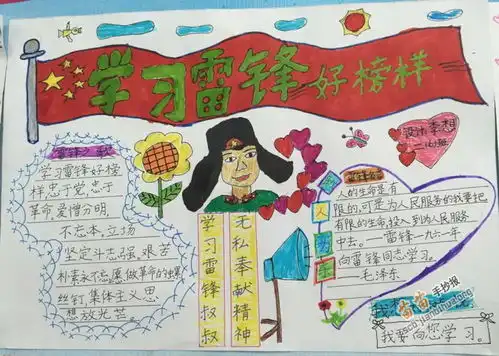 学习雷锋好榜样
学习雷锋好榜
样忠于党忠于
革命爱憎分明,
不忘本,立场
坚定斗志强,艰苦
朴素永不忘愿做革命的螺
丝钉,集体主义思
想放光芒。
学习雷锋叔叔
无私奉献精神
人的生命是有
限的,可是,为人民服务的我要把
有限的生命,投入到为人民服务
中去。——雷锋一九六一年
向雷锋同志学习。
——毛泽东
手抄报
我要向您学习。